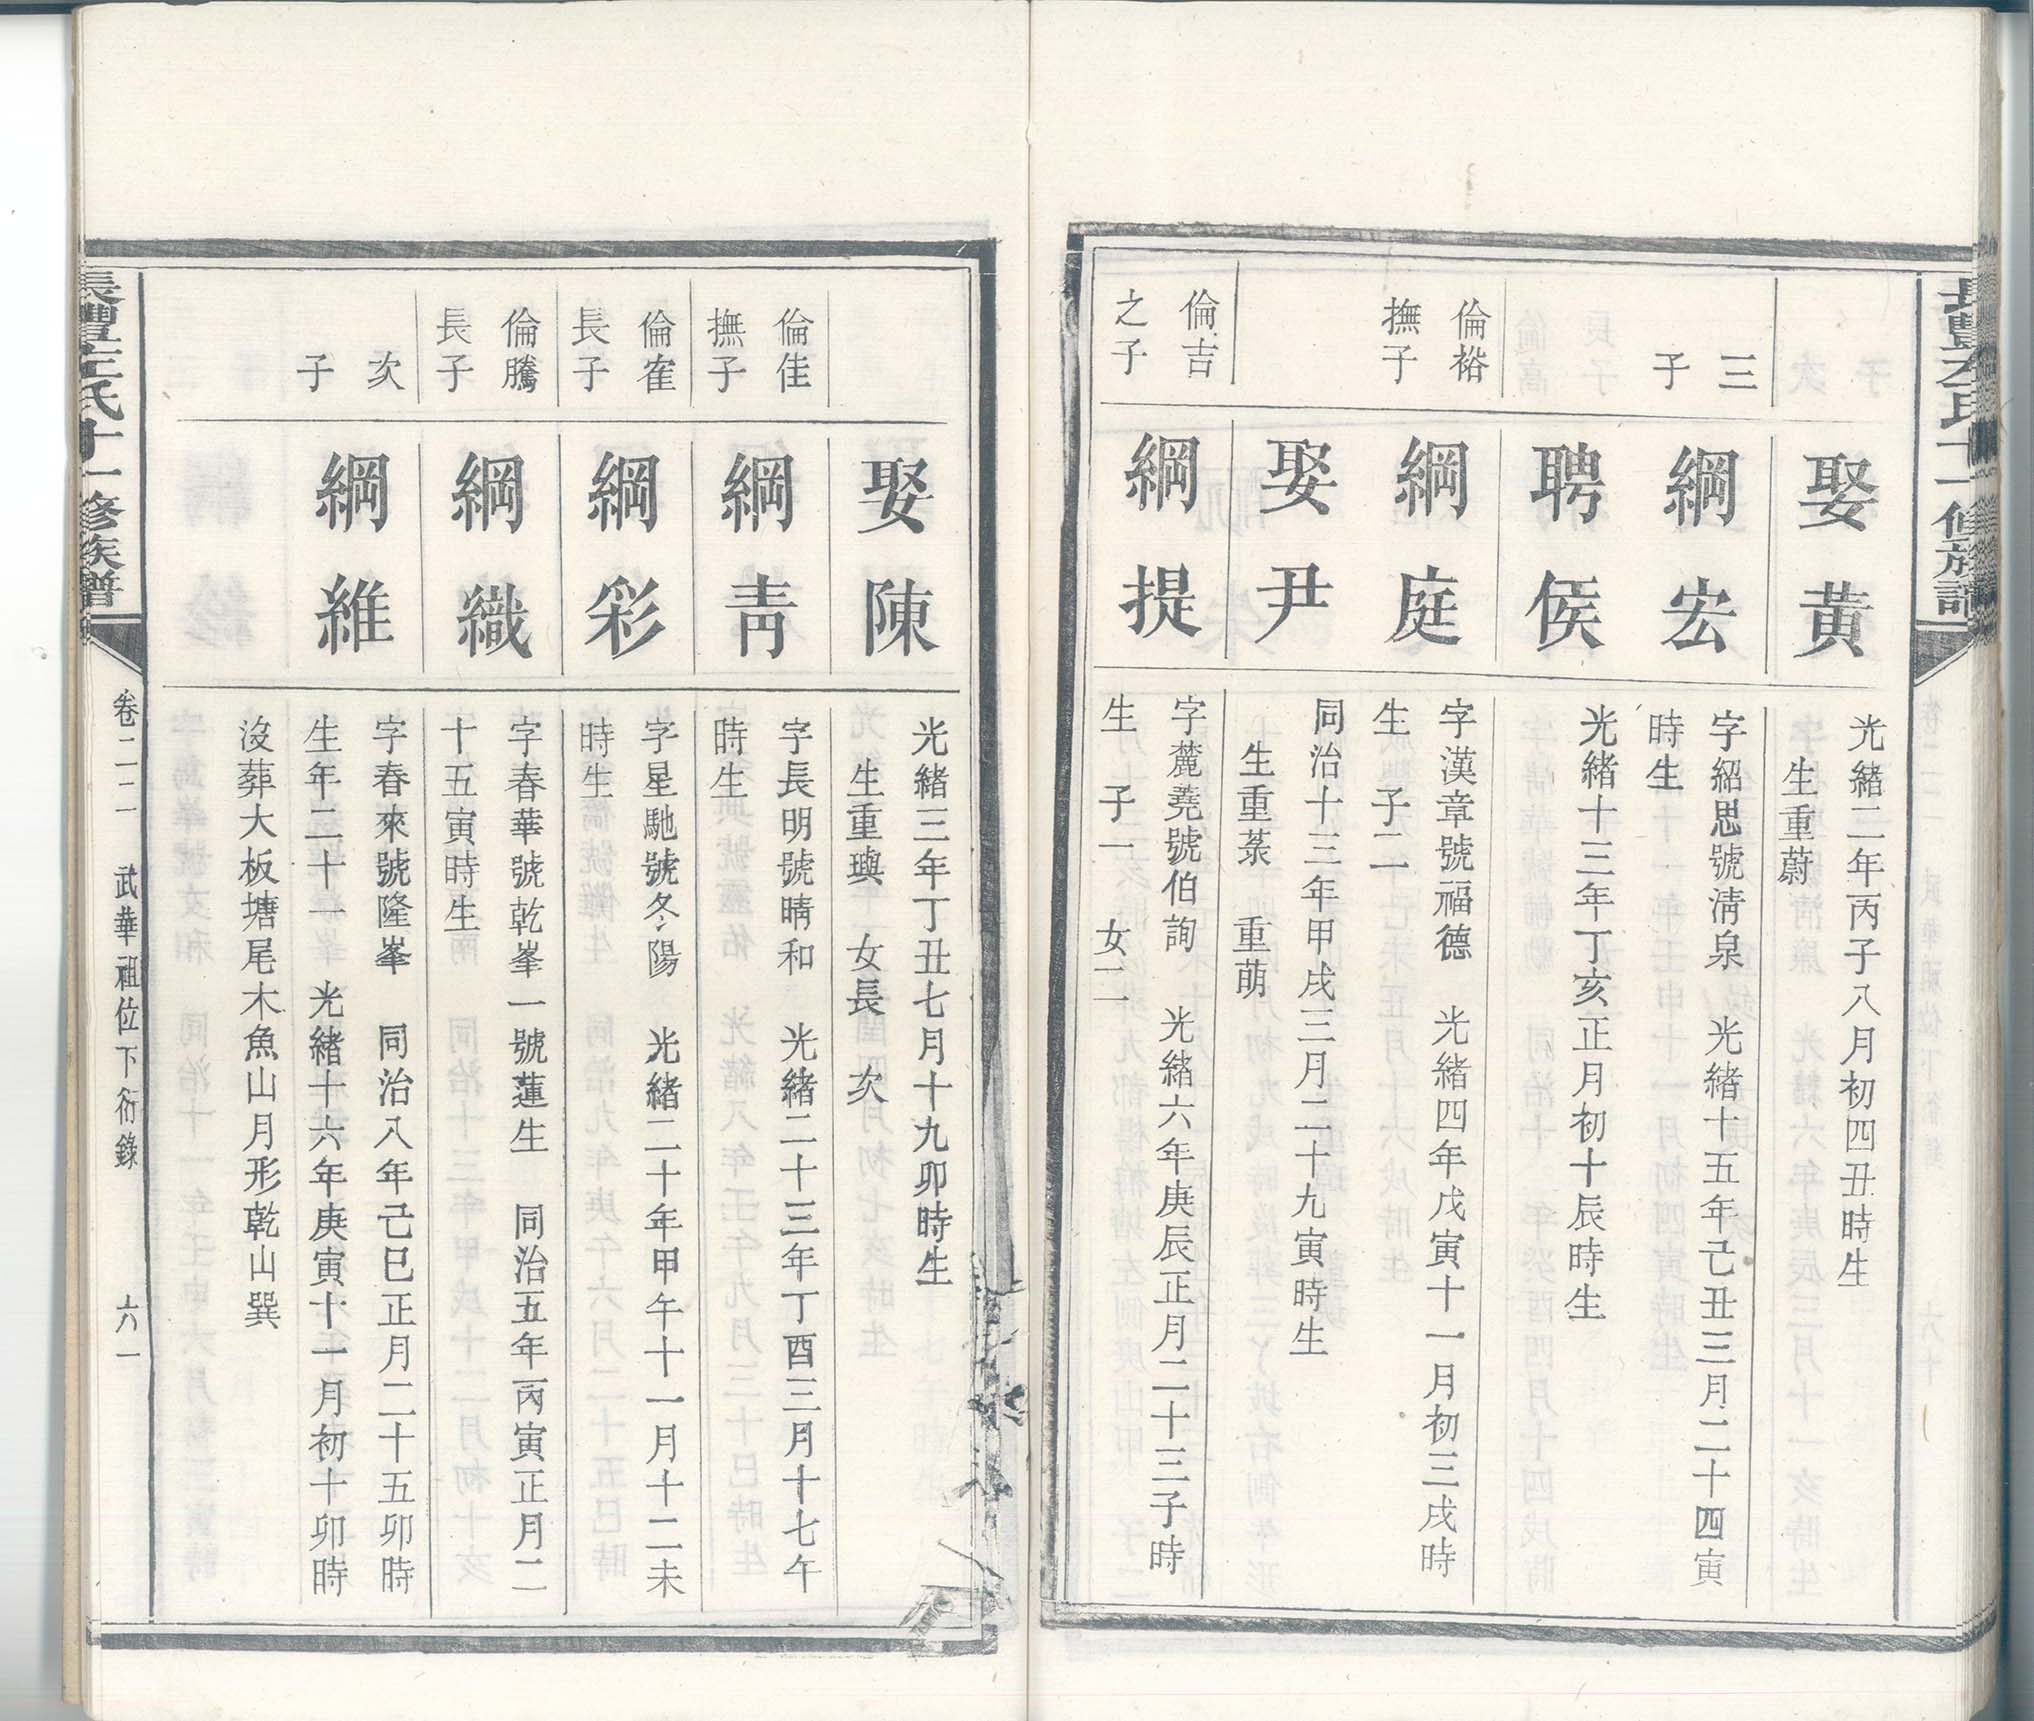 娶黃
光緒二年丙子八月初四丑時生
生重蔚
三子
綱宏
字紹思號淸泉　光緒十五年己丑三月二十四寅
時生
聘侯
光緒十三年丁亥正月初十辰時生
倫裕
撫子
綱庭
字漢章號福德　光緒四年戊寅十一月初三戌時
生　子二
娶尹
同治十三年甲戌三月二十九寅時生
生重菉　重萌
倫吉
之子
綱提
字麓蕘號伯詢　光緒六年庚辰正月二十三子時
生　子一　女二
娶陳
光緒三年丁丑七月十九卯時生
生重璵　女長　次
倫佳
撫子
綱靑
字長明號晴和　光緒二十三年丁酉三月十七午
時生
倫寉
長子
綱彩
字星馳號冬陽　光緒二十年甲午十一月十二未
時生
倫騰
長子
綱織
字春華號乾峯一號蓮生　同治五年丙寅正月二
十五寅時生
次子
綱維
字春來號隆峯　同治八年己巳正月二十五卯時
生年二十一　光緒十六年庚寅十一月初十卯時
沒葬大板塘尾木魚山月形乾山巽
十一修族譜
卷二二　武華祖位下衍錄　六一